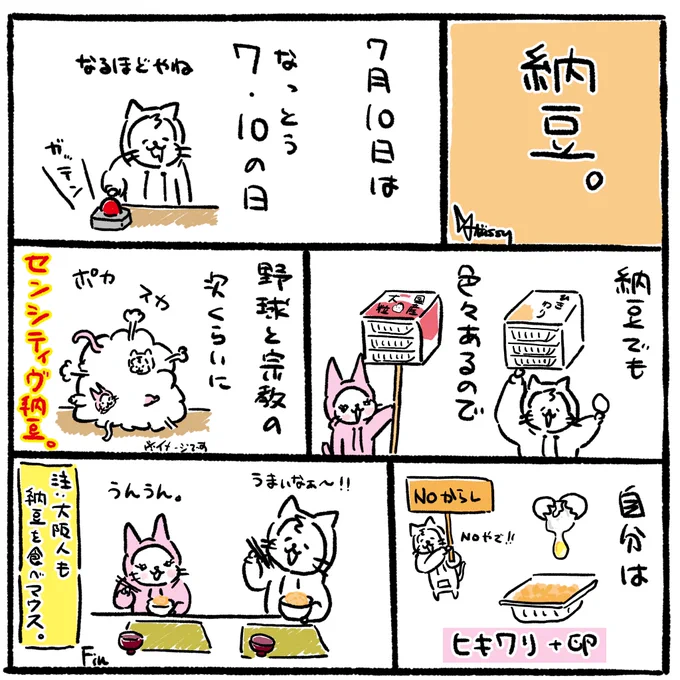 納豆。
Nissy
7月10日は
なっとう
7・10の日
なるほどやね
ガッテン
納豆でも
ひきわり
色々あるので
国産
大粒
野球と宗教の
次くらいに
スカ
ポカ
センシティヴ納豆。
※イメージです
自分は
NOからし
NOやで!!
ヒキワリ+卵
うまいなぁ〜!!
うんうん。
注:大阪人も
納豆を食べマウス。
Fin